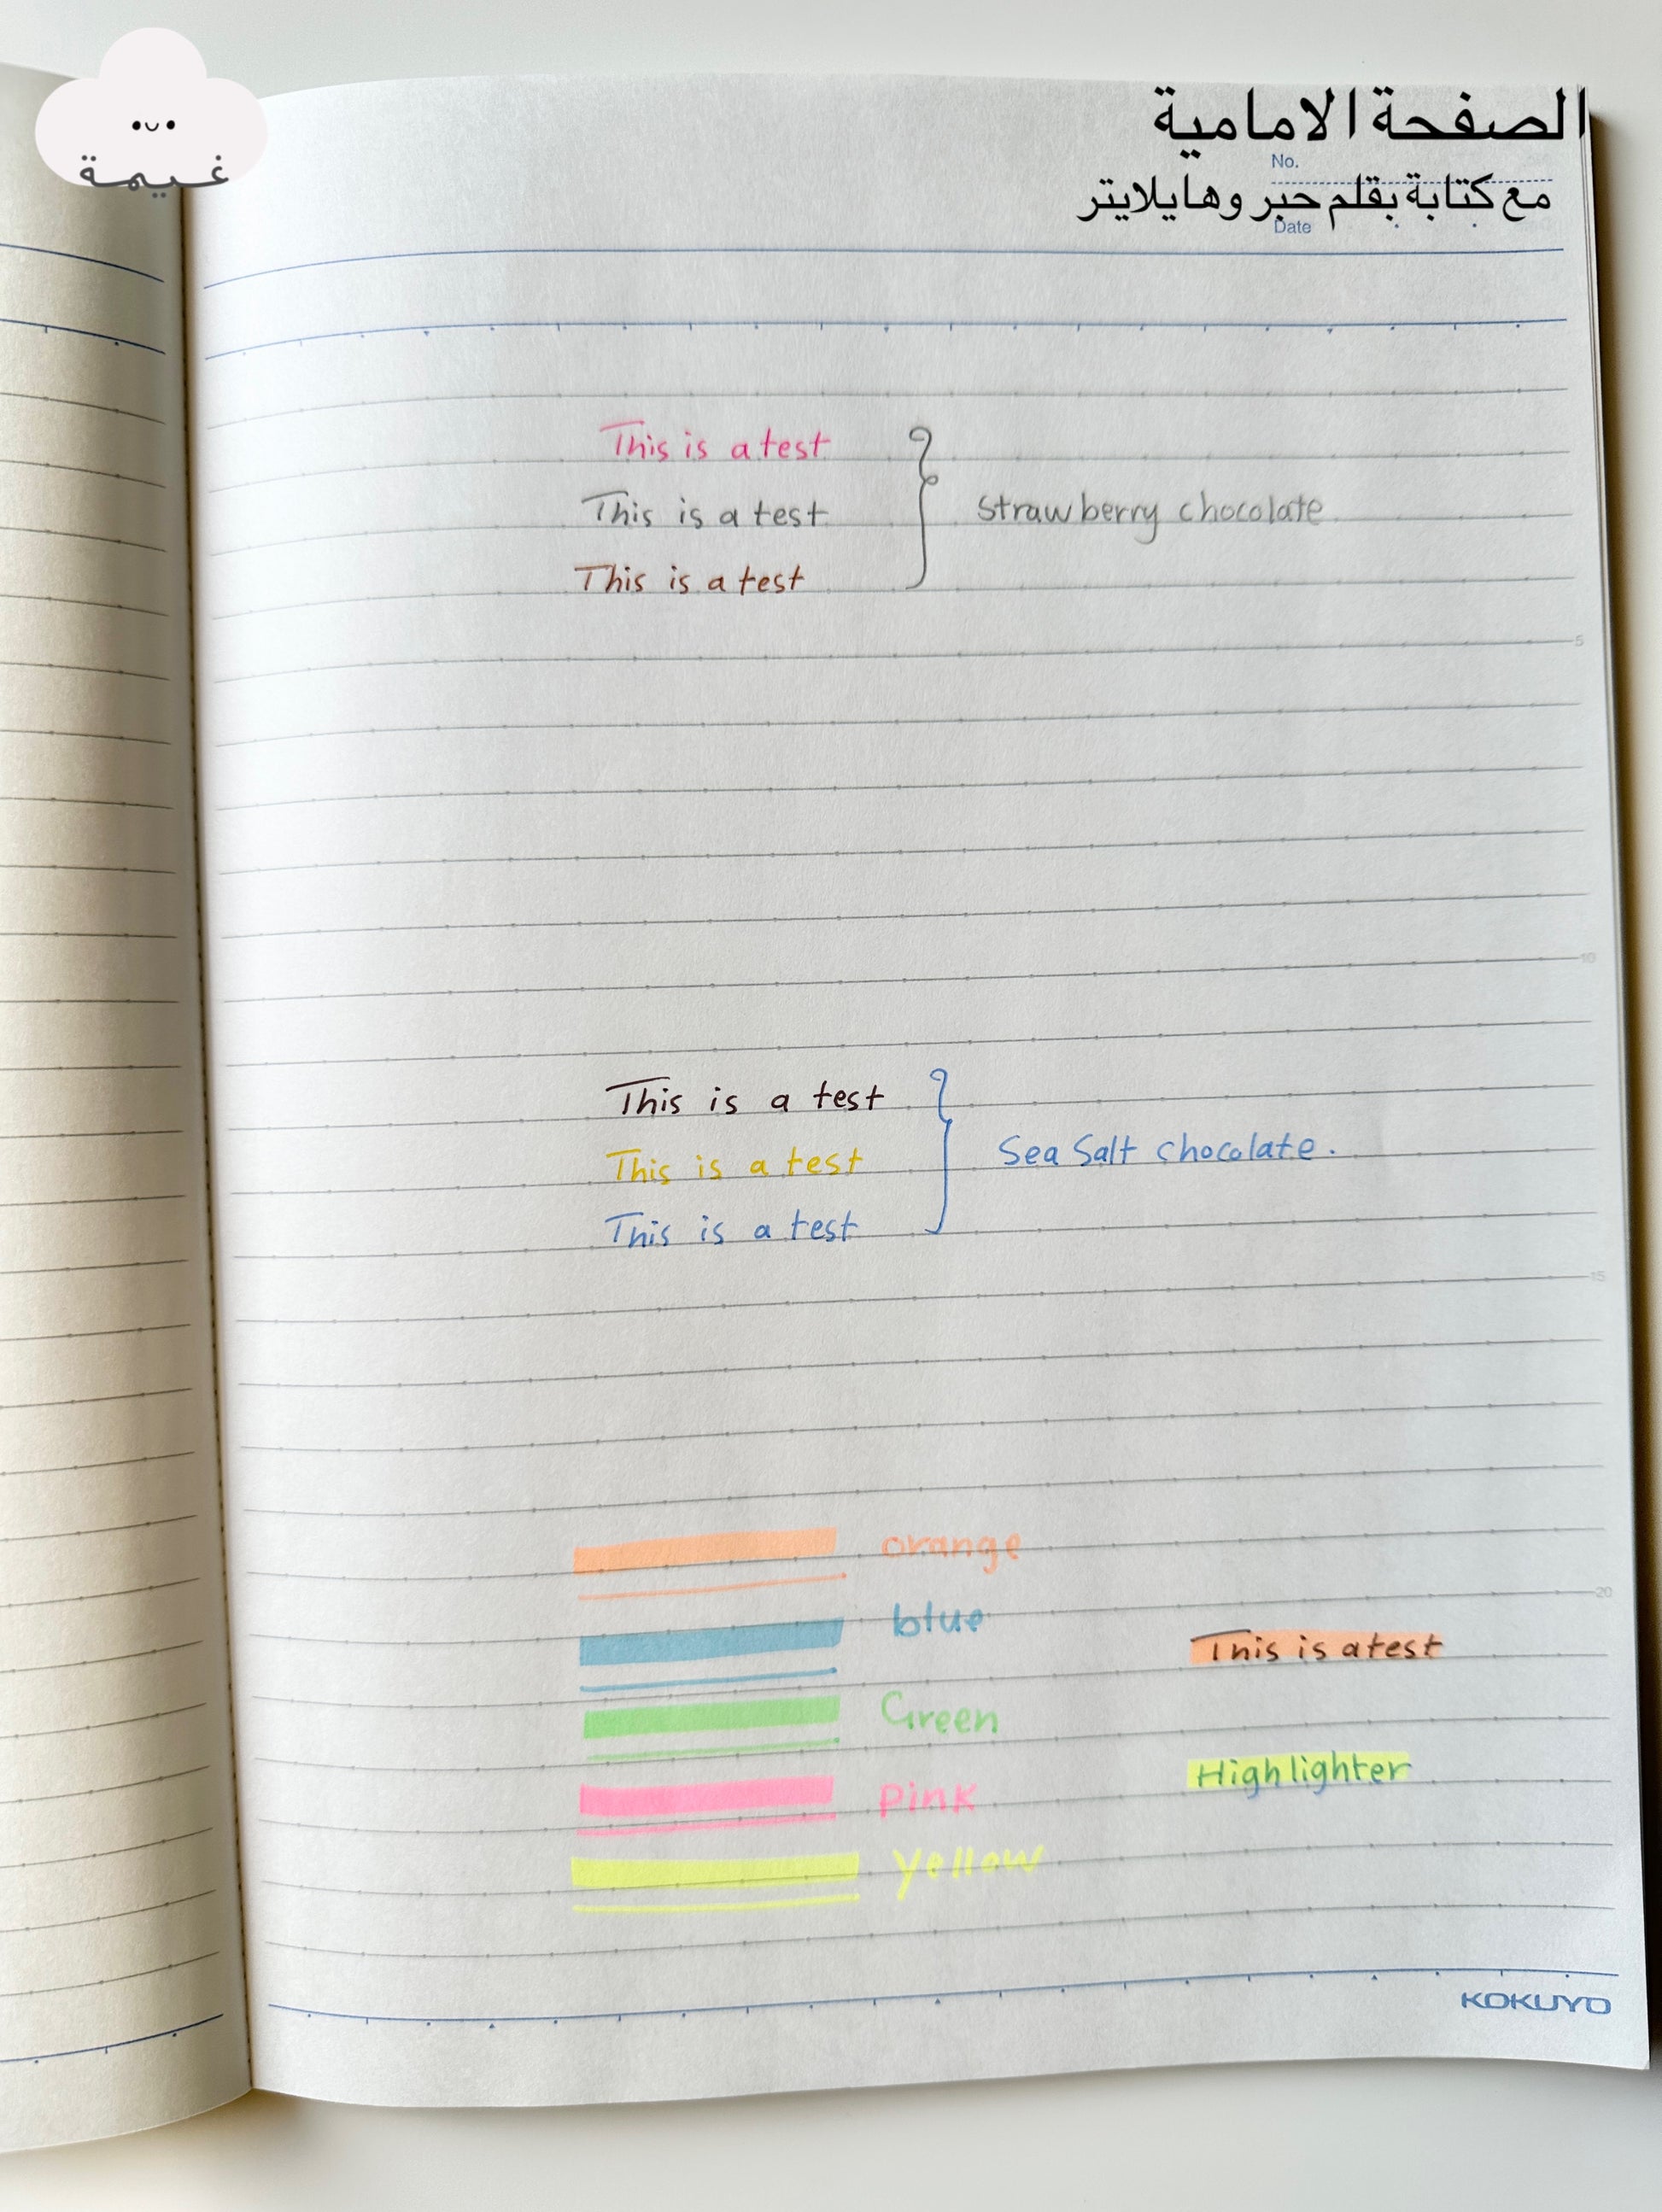 غيمة
الصفحة الامامية
No.
مع كتابة بقلم حبر وهايلايتر
Date
This is a test
This is a test
Strawberry chocolate
This is a test
5
10
This is a test
This is a test
Sea Salt chocolate.
This is a test
15
orange
20
blue
This is a test
Green
Highlighter
Pink
yellow
KOKUYO